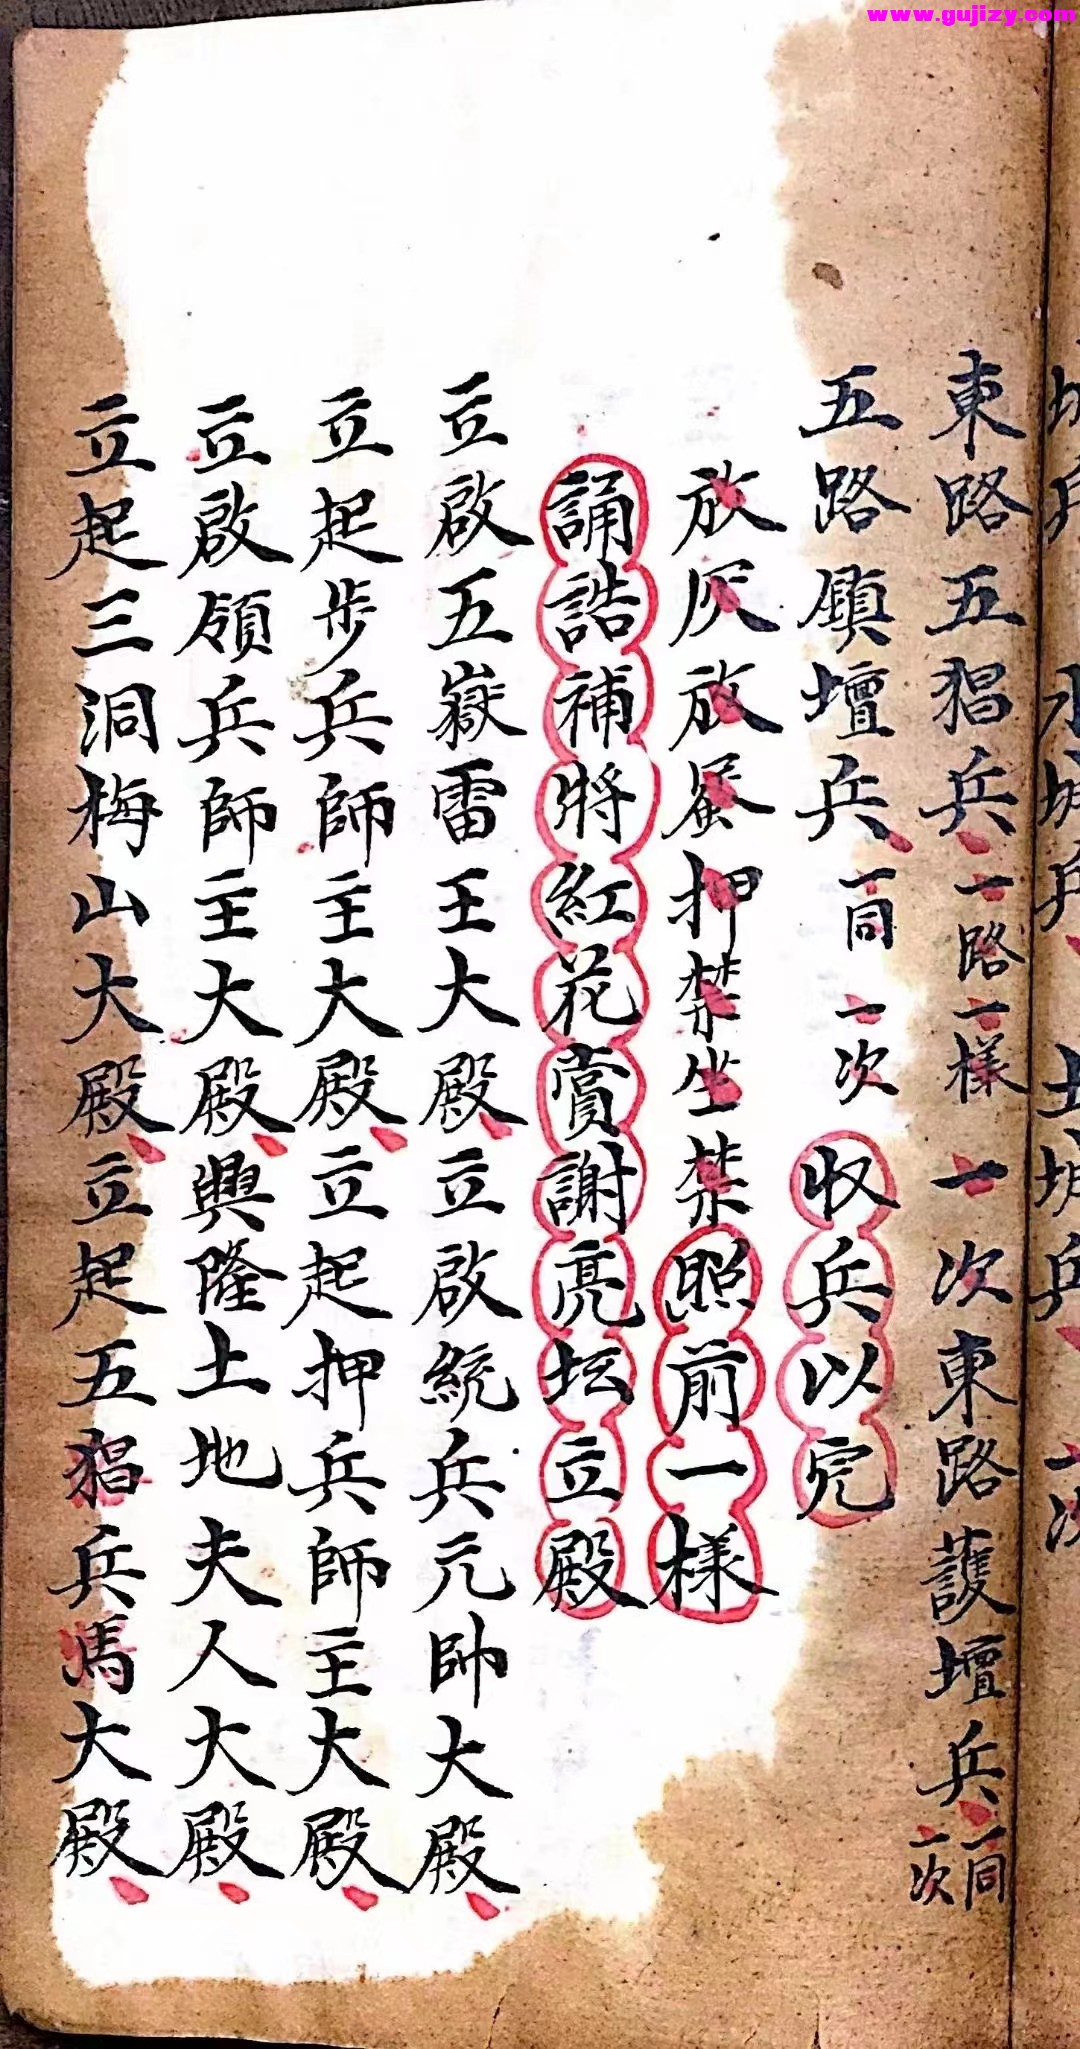 www.gujizy.com
東路五猖兵一路一樣一次東路護壇兵一同一次
五路鎮壇兵一同一次收兵以完
放灰放蛋押禁坐禁照前一樣
誦誥補將紅花賞謝亮坛立殿
立啟五嶽雷王大殿立啟統兵元帥大殿
立起步兵師主大殿立起押兵師主大殿
立啟領兵師主大殿興隆土地夫人大殿
立起三洞梅山大殿立起五猖兵馬大殿